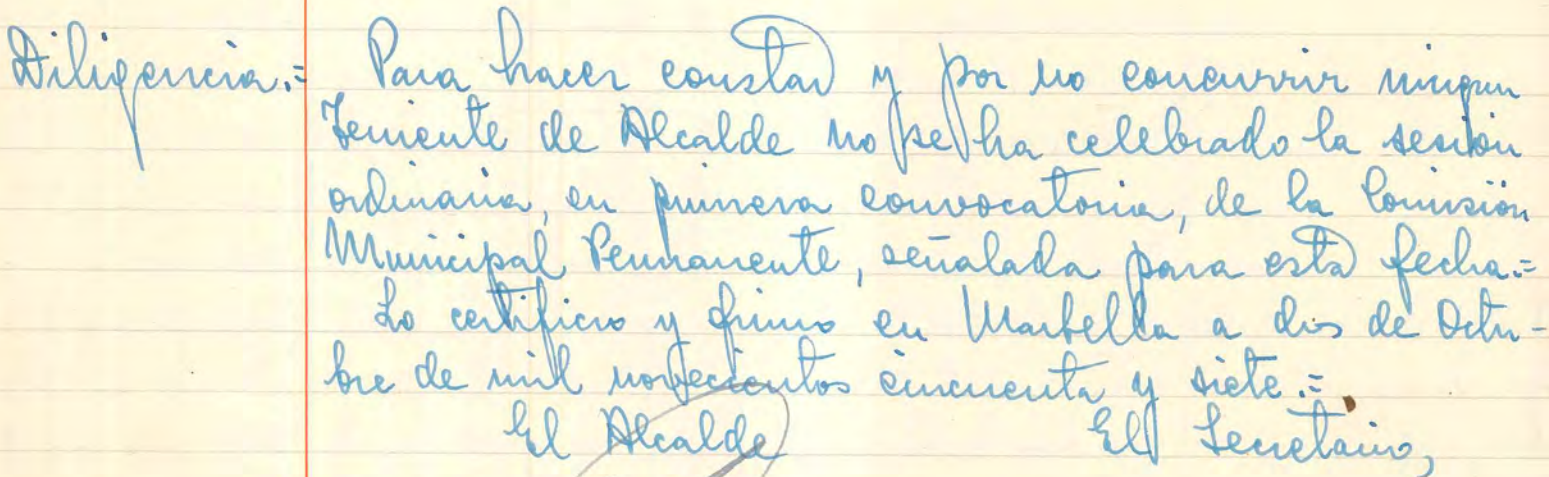 Diligencia.= Para hacer constar y por no concurrir ningun
Teniente de Alcalde no se ha celebrado la sesión
ordinaria, en primera convocatoria, de la Comisión
Municipal Permanente, señalada para esta fecha.=
Lo certifico y firmo en Marbella a dos de Octu-
bre de mil novecientos cincuenta y siete.=
El Alcalde El Secretario,